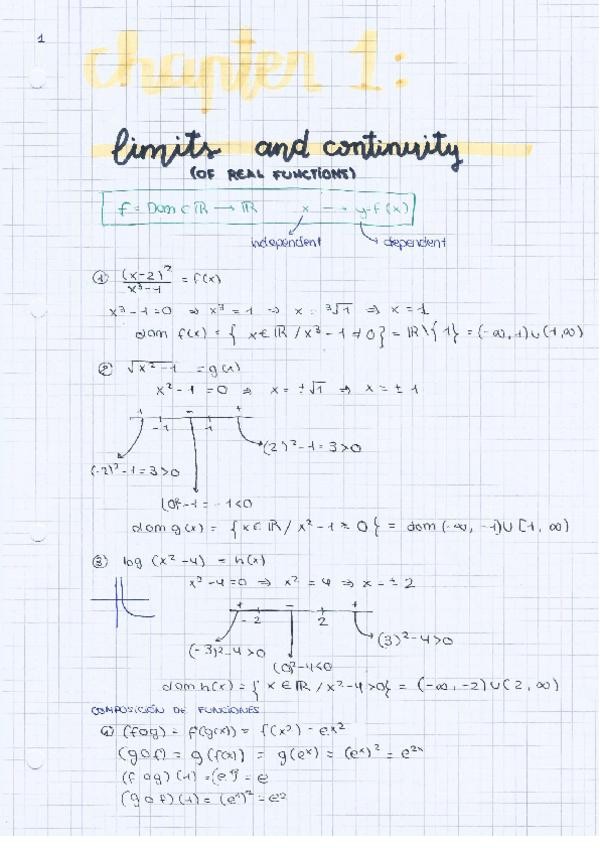 1
chapter 1:
limits and continuity
(OF REAL FUNCTIONS)
f = Dom ⊂ ℝ → ℝ x → y=f(x)
independent dependent
① (x-2)²/x³-1 = f(x)
x³-1=0 ⇒ x³=1 ⇒ x = ³√1 ⇒ x=1
dom f(x) = { x∈ℝ / x³-1≠0 } = ℝ\{1} = (-∞,1)∪(1,∞)
② √x²-1 = g(x)
x²-1=0 ⇒ x=±√1 ⇒ x=±1
+ - +
-1 1
(2)²-1=3>0
(-2)²-1=3>0
(0)²-1=-1<0
dom g(x) = {x∈ℝ / x²-1≥0} = dom (-∞, -1)∪[1, ∞)
③ log (x²-4) = h(x)
x²-4=0 ⇒ x²=4 ⇒ x=±2
+ - +
-2 2
(3)²-4>0
(-3)²-4>0
(0)²-4<0
dom h(x) = { x∈ℝ / x²-4>0} = (-∞,-2)∪(2,∞)
COMPOSICIÓN DE FUNCIONES
a) (fog) = f(g(x)) = f(x²) = ex²
(gof) = g(f(x)) = g(eˣ) = (eˣ)² = e²ˣ
(f og) (1) = (e¹)² = e
(gof)(1) = (e¹)² = e²